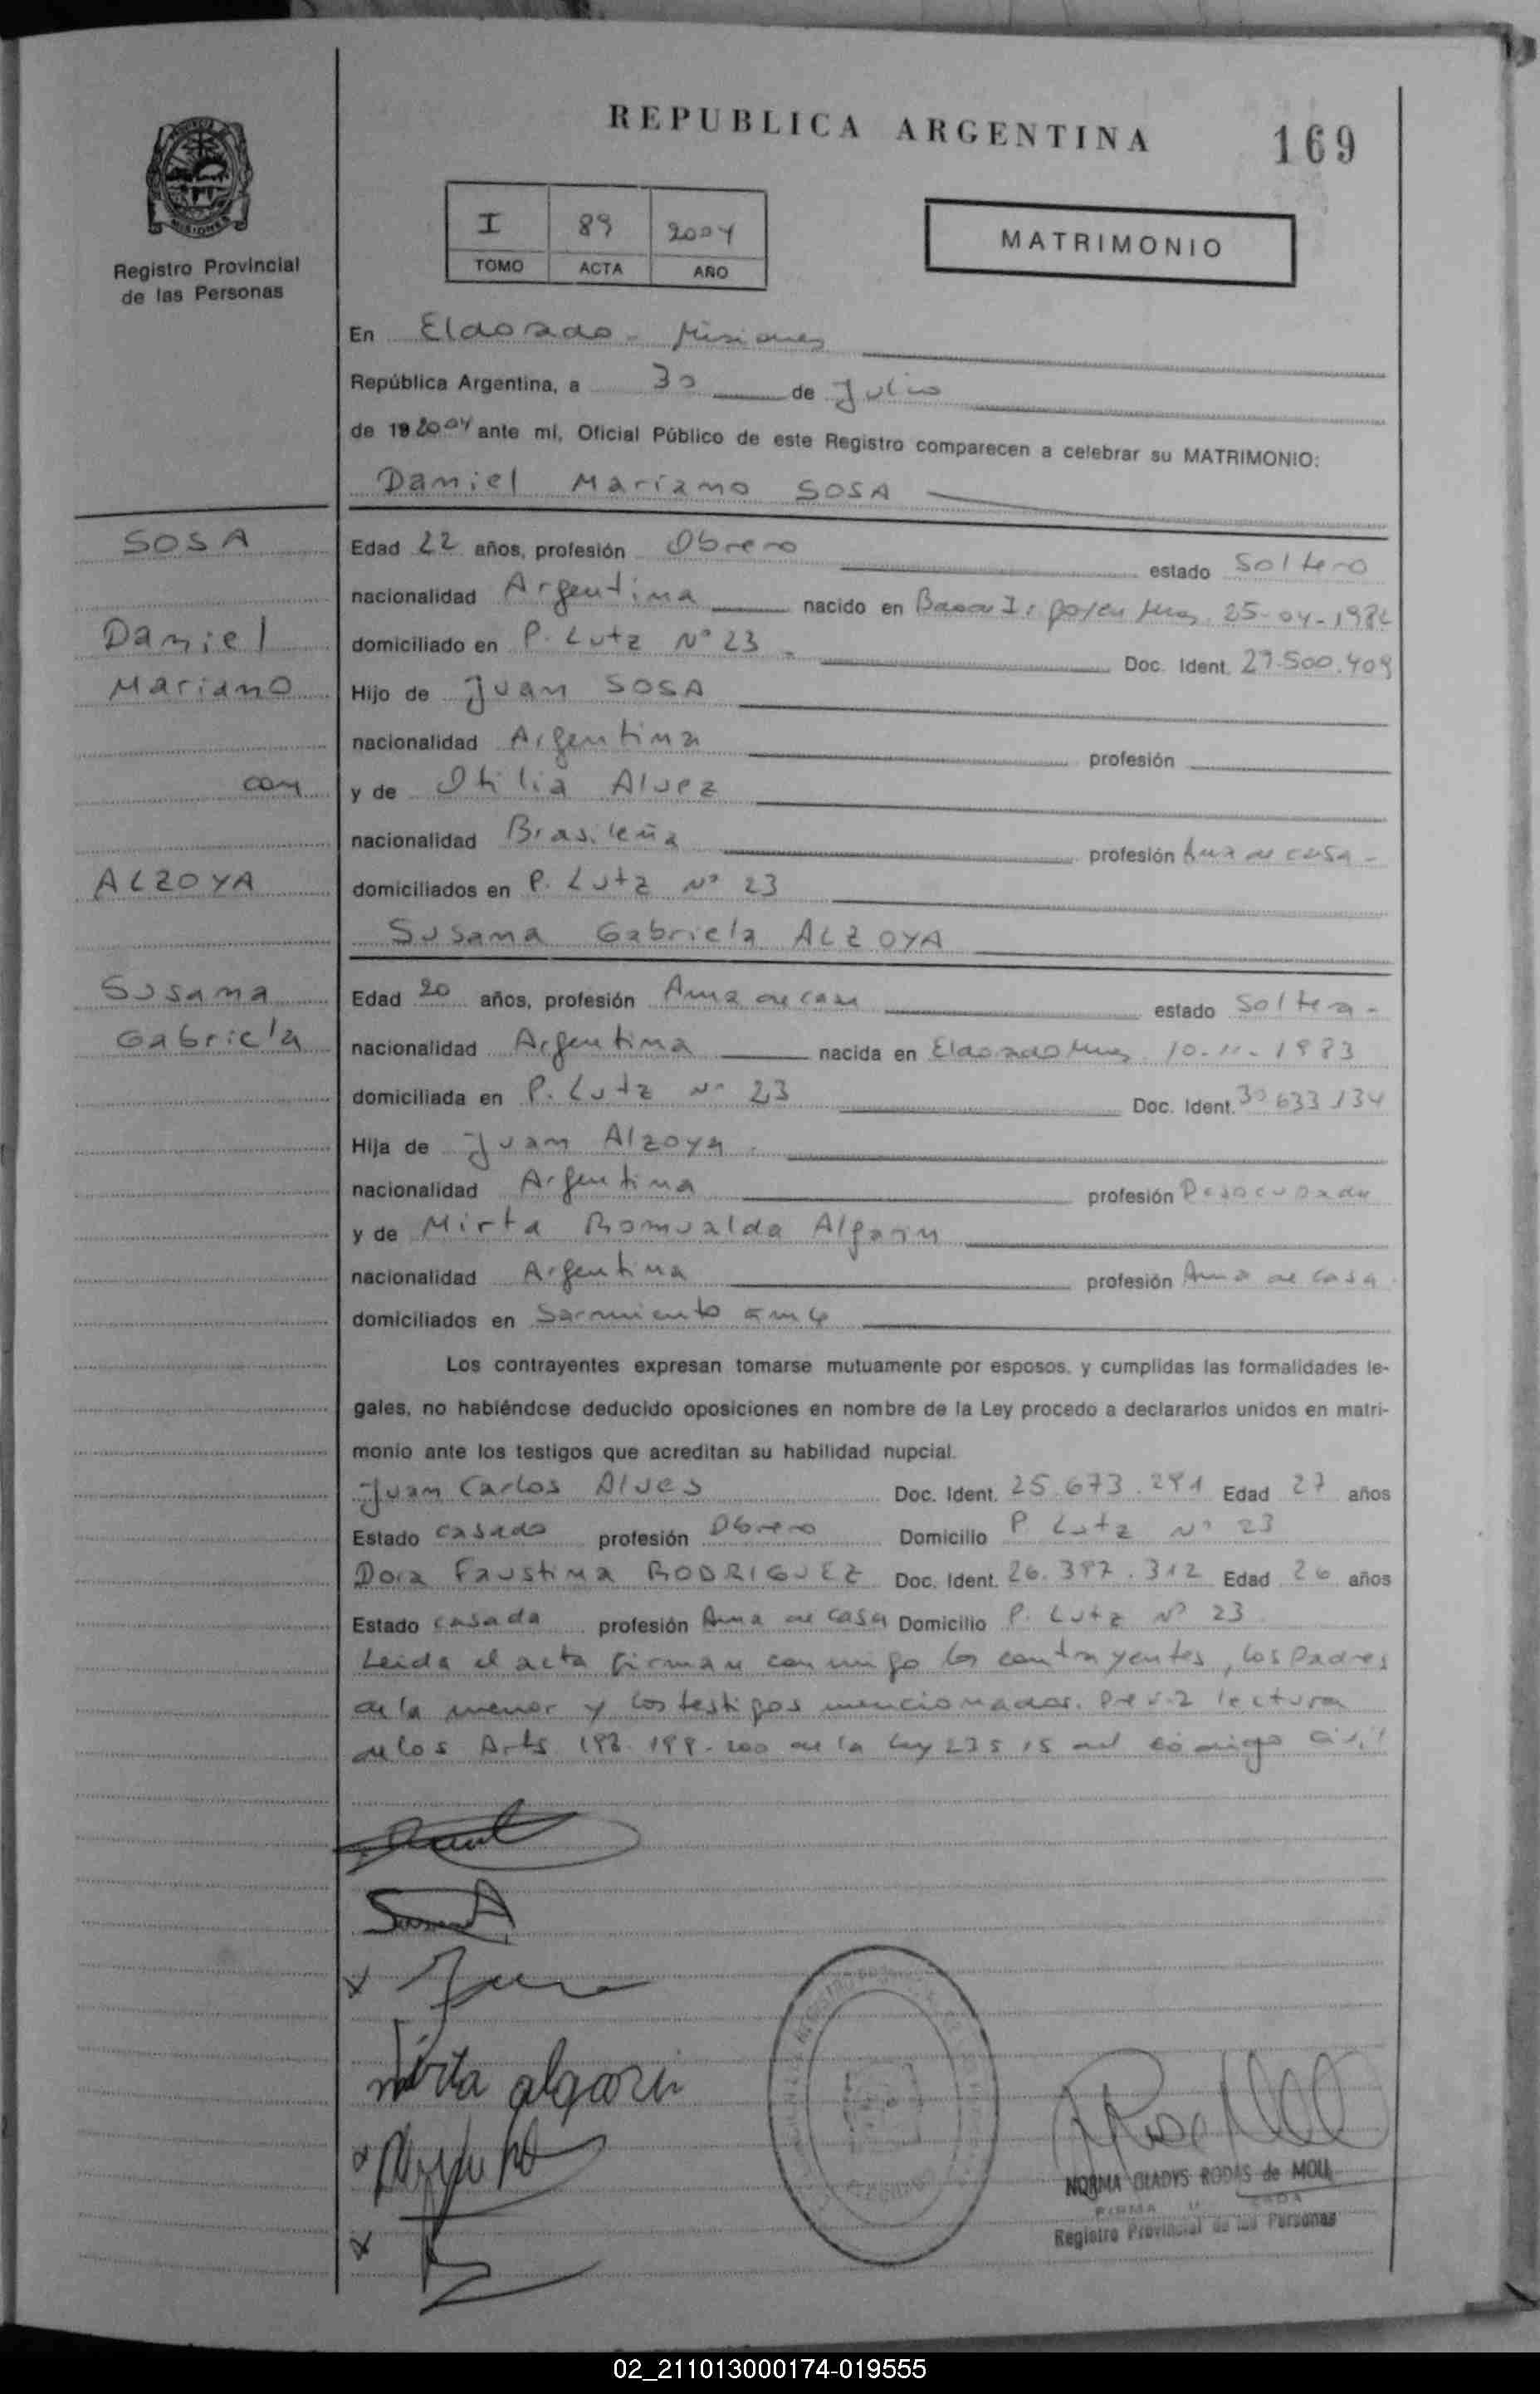 REPUBLICA ARGENTINA
169
I 89 2004
TOMO ACTA AÑO
MATRIMONIO
Registro Provincial
de las Personas
En Eldorado - Misiones
República Argentina, a 30 de Julio
de 19 2004 ante mí, Oficial Público de este Registro comparecen a celebrar su MATRIMONIO:
Daniel Mariano SOSA
SOSA
Daniel
Mariano
con
ALZOYA
Susana
Gabriela
Edad 22 años, profesión Obrero estado Soltero
nacionalidad Argentina nacido en 25-04-1982
domiciliado en P. Lutz Nº 23 - Doc. Ident. 29.500.409
Hijo de Juan SOSA
nacionalidad Argentina profesión
y de Otilia Alvez
nacionalidad Brasileña profesión Ama de casa -
domiciliados en P. Lutz Nº 23
Susana Gabriela ALZOYA
Edad 20 años, profesión Ama de casa estado Soltera -
nacionalidad Argentina nacida en Eldorado Mnes. 10-11-1983
domiciliada en P. Lutz Nº 23 Doc. Ident. 30 633 134
Hija de Juan Alzoya
nacionalidad Argentina profesión Desocupado
y de Mirta Romualda Algarin
nacionalidad Argentina profesión Ama de casa
domiciliados en Sarmiento
Los contrayentes expresan tomarse mutuamente por esposos, y cumplidas las formalidades le-
gales, no habiéndose deducido oposiciones en nombre de la Ley procedo a declararlos unidos en matri-
monio ante los testigos que acreditan su habilidad nupcial.
Juan Carlos Alves Doc. Ident. 25.673.291 Edad 27 años
Estado casado profesión Obrero Domicilio P. Lutz Nº 23
Dora Faustina RODRIGUEZ Doc. Ident. 26.397.312 Edad 26 años
Estado casada profesión Ama de casa Domicilio P. Lutz Nº 23
Leida el acta firman conmigo los contrayentes, los Padres
de la menor y los testigos mencionados. Previa lectura
de los Arts 198-199-200 de la ley 23515 del código Civil
Mirta algarin
NORMA GLADYS RODAS de MOLL
FIRMA
Registro Provincial de las Personas
02_211013000174-019555